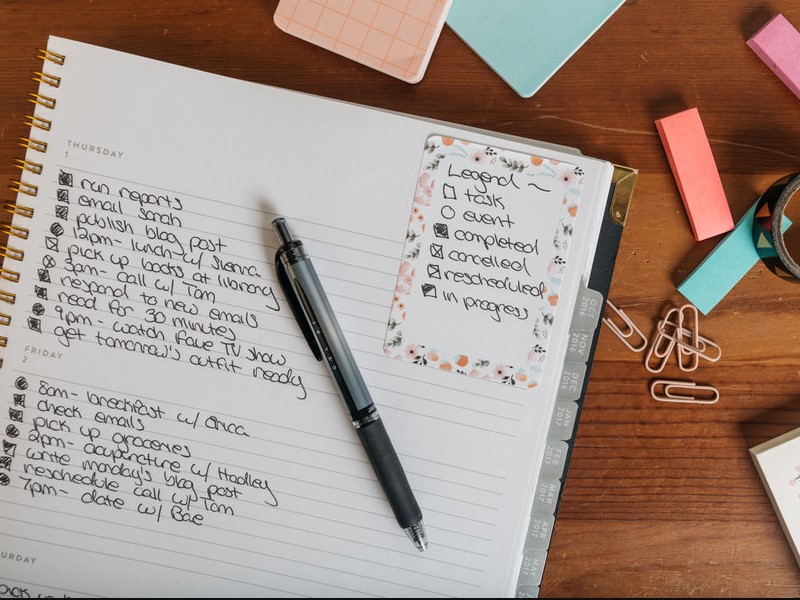 THURSDAY
1
run reports
email sarah
publish blog post
12pm- lunch w/ Sienna
pick up books at library
3am- call w/ Tom
respond to new emails
read for 30 minutes
9pm- watch fave TV show
get tomorrow's outfit ready
FRIDAY
2
8am- breakfast w/ Erica
check emails
pick up groceries
2pm- acupuncture w/ Hadley
write monday's blog post
reschedule call w/ Tom
7pm- date w/ Bae
URDAY
pick
Legend ~
task
event
completed
cancelled
rescheduled
in progress
OCT 2016
NOV 2016
DEC 2016
JAN 2017
FEB 2017
MAR 2017
APR 2017
MAY 2017